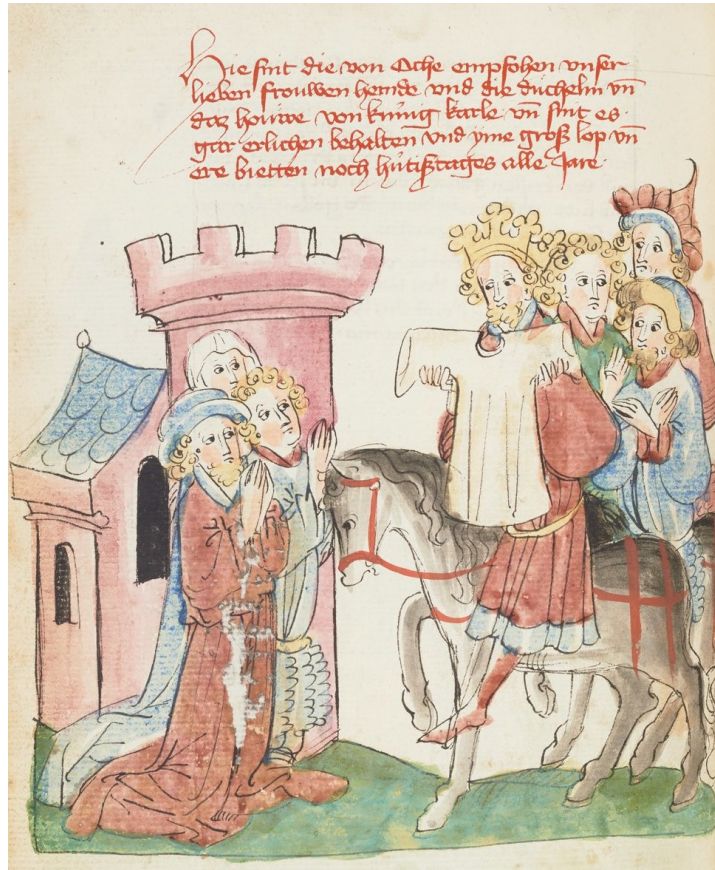 Hie sint die von Oche empfohen vnser
lieben frouwen hemde vnd die duͤchelin vn̄
daz houwe von kuͤnig karle vn̄ sint es
gar erlichen behalten vnd yme groß lop vn̄
ere bietten noch huͤtißtages alle Jare